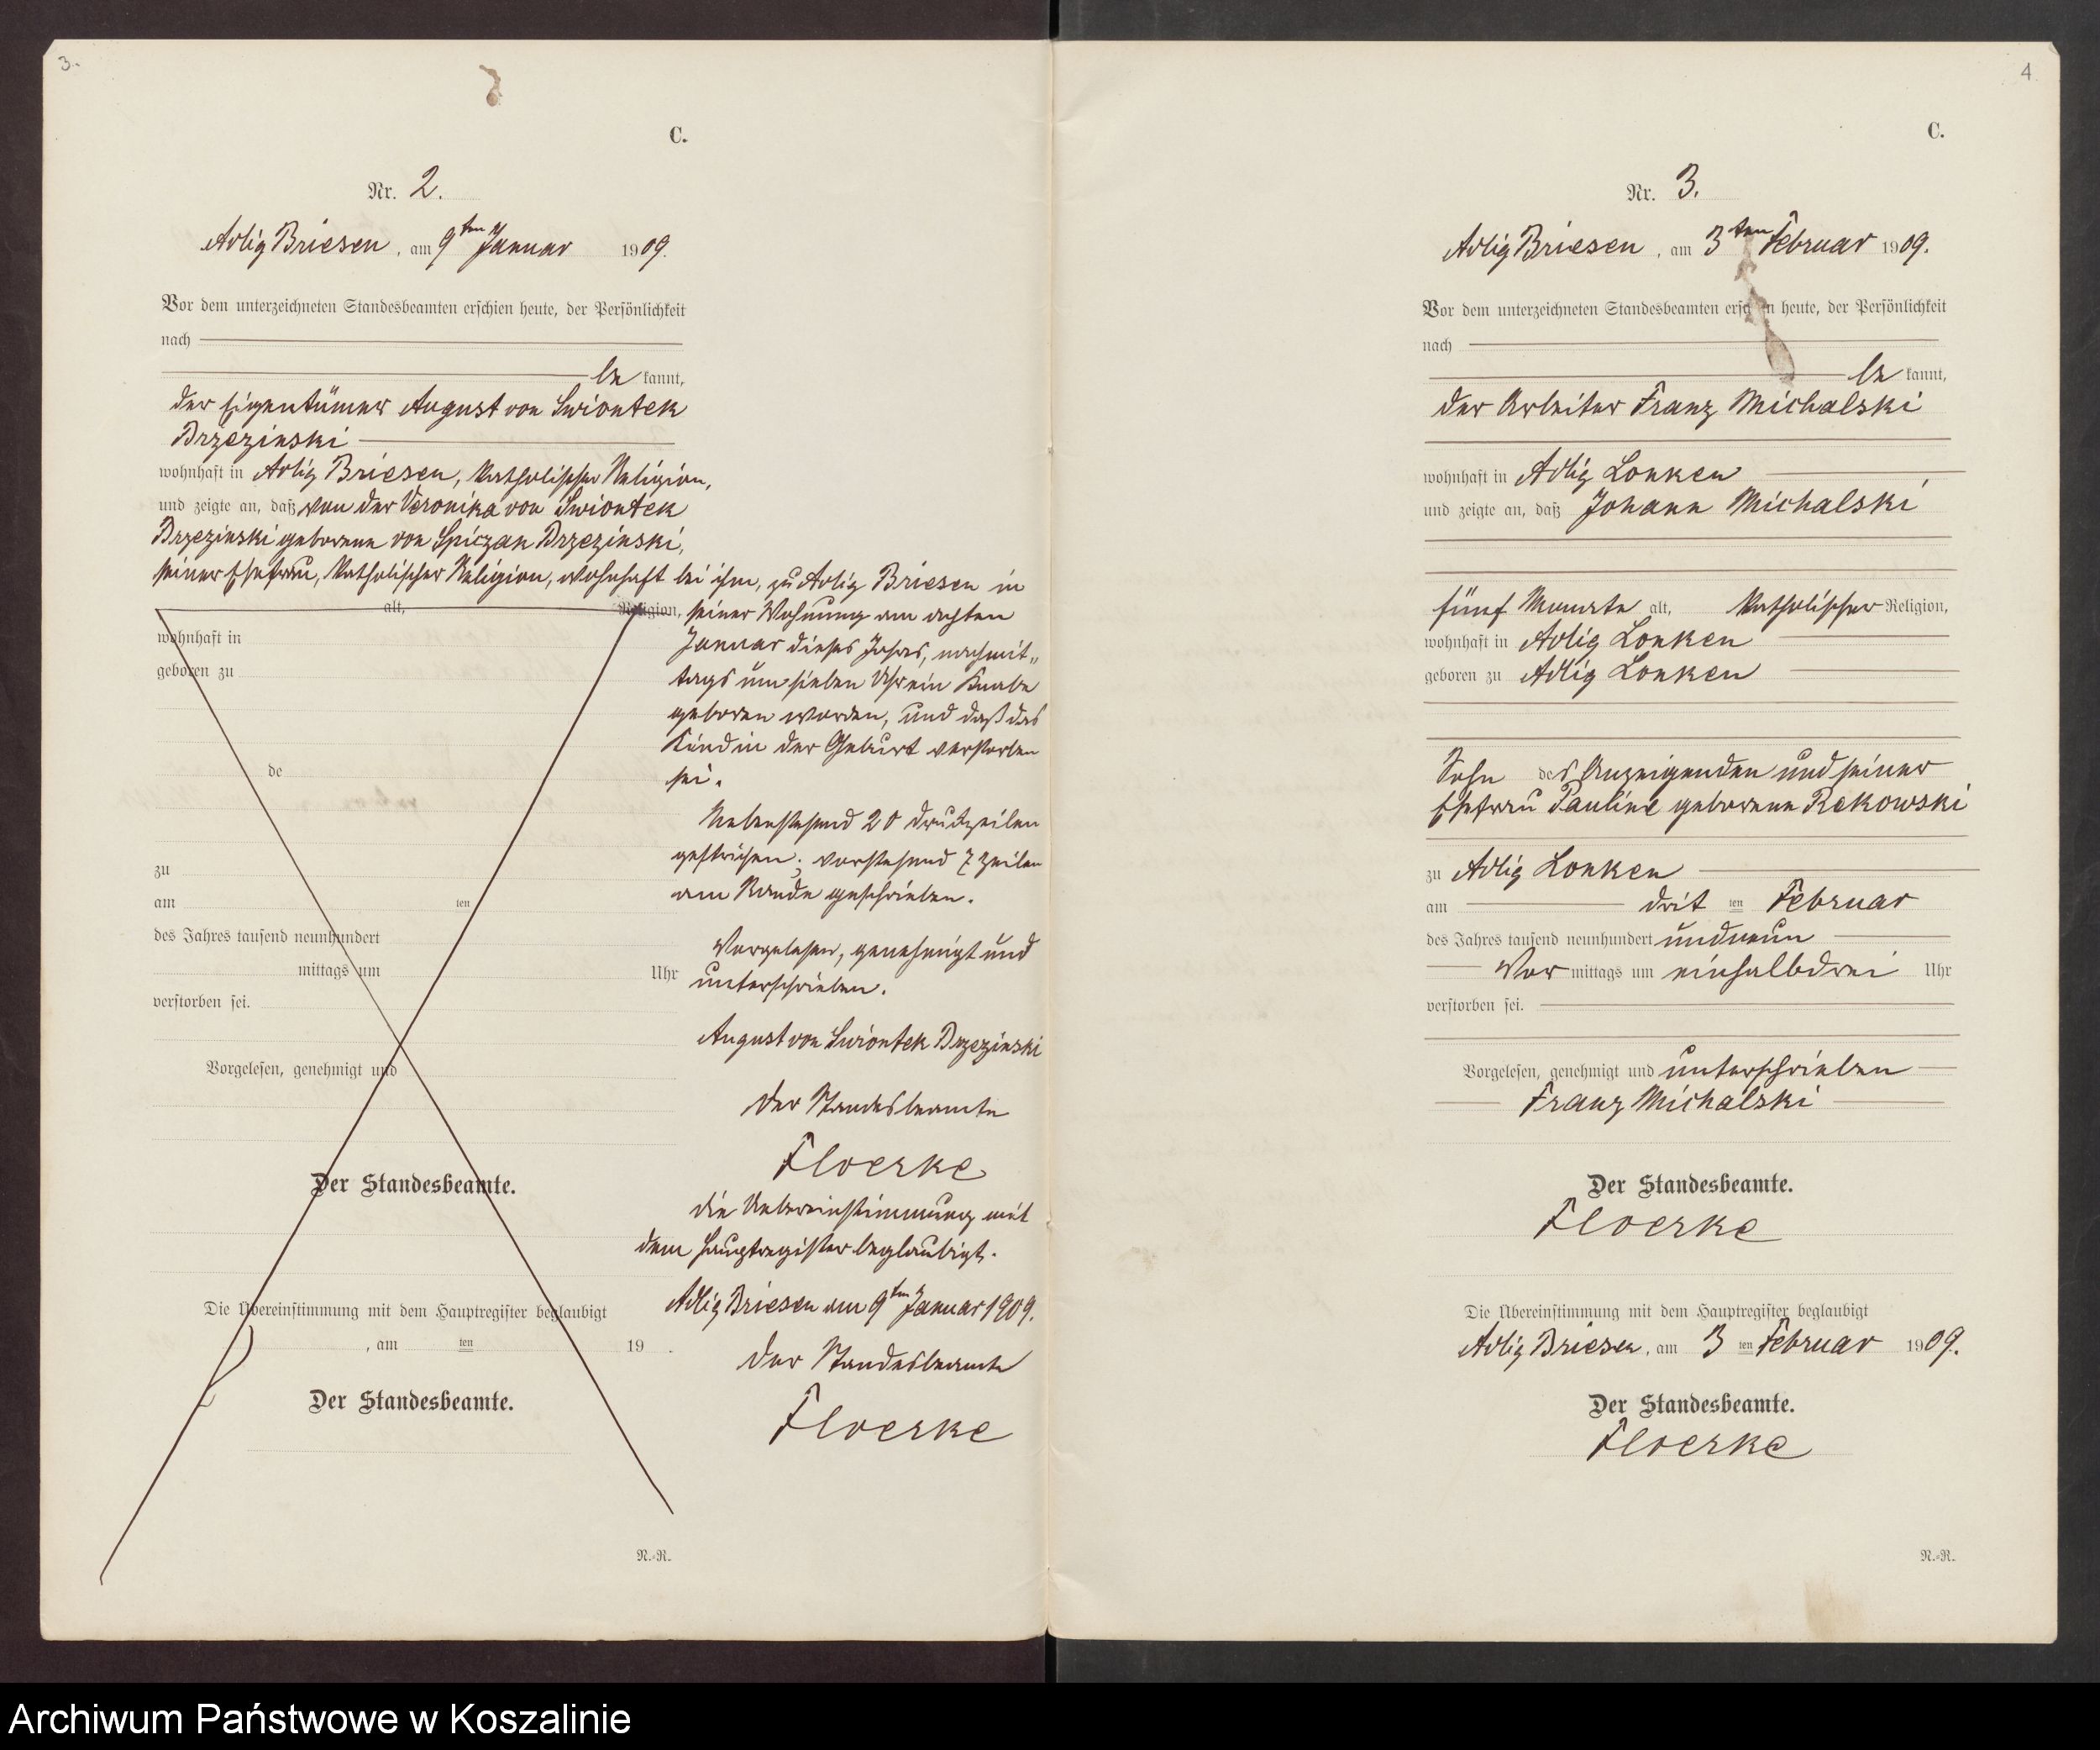 3.
C.
Nr. 2.
Adlig Briesen, am 9ten Januar 1909.
Vor dem unterzeichneten Standesbeamten erschien heute, der Persönlichkeit
nach
be kannt,
der Eigentümer August von Swiontek
Brzezinski
wohnhaft in Adlig Briesen, katholischer Religion,
und zeigte an, daß von der Veronika von Swiontek
Brzezinski geborenen von Spiczak Brzezinski,
seiner Ehefrau, katholischer Religion, wohnhaft bei ihm, zu Adlig Briesen in
alt, Religion, seiner Wohnung am achten
wohnhaft in
Januar dieses Jahres, nachmit„
geboren zu
tags um sieben Uhr ein Knabe
geboren worden, und daß das
Kind in der Geburt verstorben
de
sei.
Nebenstehend 20 Druckzeilen
gestrichen; vorstehend 7 Zeilen
zu
am Rande geschrieben.
am ten
des Jahres tausend neunhundert
Vorgelesen, genehmigt und
mittags um Uhr
unterschrieben.
verstorben sei.
August von Swiontek Brzezinski
Vorgelesen, genehmigt und
Der Standesbeamte
Floerke
Der Standesbeamte.
Die Uebereinstimmung mit
dem Hauptregister beglaubigt.
Adlig Briesen am 9ten Januar 1909.
Die Übereinstimmung mit dem Hauptregister beglaubigt
, am ten 19 .
Der Standesbeamte
Der Standesbeamte.
Floerke
N.=R.
4
C.
Nr. 3.
Adlig Briesen, am 3ten Februar 1909.
Vor dem unterzeichneten Standesbeamten erschien heute, der Persönlichkeit
nach
be kannt,
der Arbeiter Franz Michalski
wohnhaft in Adlig Lonken
und zeigte an, daß Johann Michalski,
fünf Monate alt, katholischer Religion,
wohnhaft in Adlig Lonken
geboren zu Adlig Lonken
Sohn des Anzeigenden und seiner
Ehefrau Pauline geborene Rekowski
zu Adlig Lonken
am dritten Februar
des Jahres tausend neunhundert und neun
Vor mittags um einhalbdrei Uhr
verstorben sei.
Vorgelesen, genehmigt und unterschrieben
Franz Michalski
Der Standesbeamte.
Floerke
Die Übereinstimmung mit dem Hauptregister beglaubigt
Adlig Briesen, am 3ten Februar 1909.
Der Standesbeamte.
Floerke
N.=R.
Archiwum Państwowe w Koszalinie